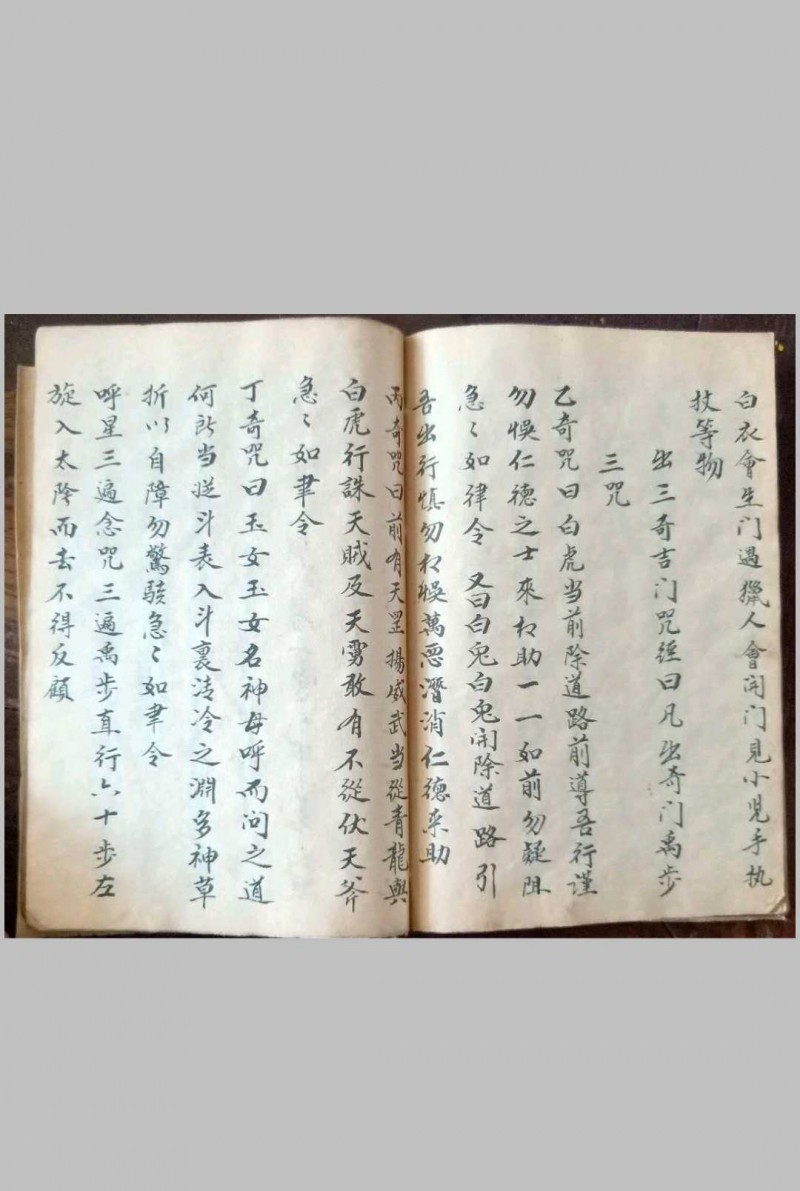 白衣會生门遇獵人會開门見小児手执
技等物
出三奇吉门咒經曰凡出奇门禹步
三咒
乙奇咒曰白虎当前除道路前導吾行谨
勿悞仁德之士來相助一一如前勿疑阻
急〻如律令 又曰白兎白兎開除道路引
吾出行慎勿相悞萬惡潛消仁德来助
丙奇咒曰前有天罡揚威武当從青龍與
白虎行誅天賊及天雳敢有不從伏天斧
急〻如聿令
丁奇咒曰玉女玉女名神母呼而问之道
何所当從斗表入斗裏清冷之淵多神草
折以自障勿驚駭急〻如聿令
呼星三遍念咒三遍禹步直行六十步左
旋入太陰而去不得反顧